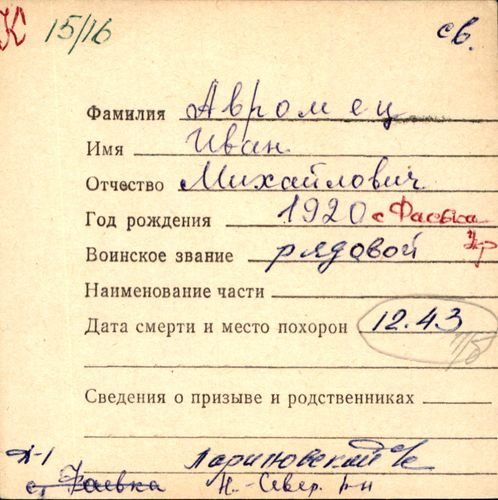 К 15/16 св.
Фамилия Авромец
Имя Иван
Отчество Михайлович
Год рождения 1920 с Фаевка
Воинское звание рядовой
Наименование части
Дата смерти и место похорон 12.43
Сведения о призыве и родственниках
Д-1 Лариновский с/с
с. Фаевка Н.-Север. р-н